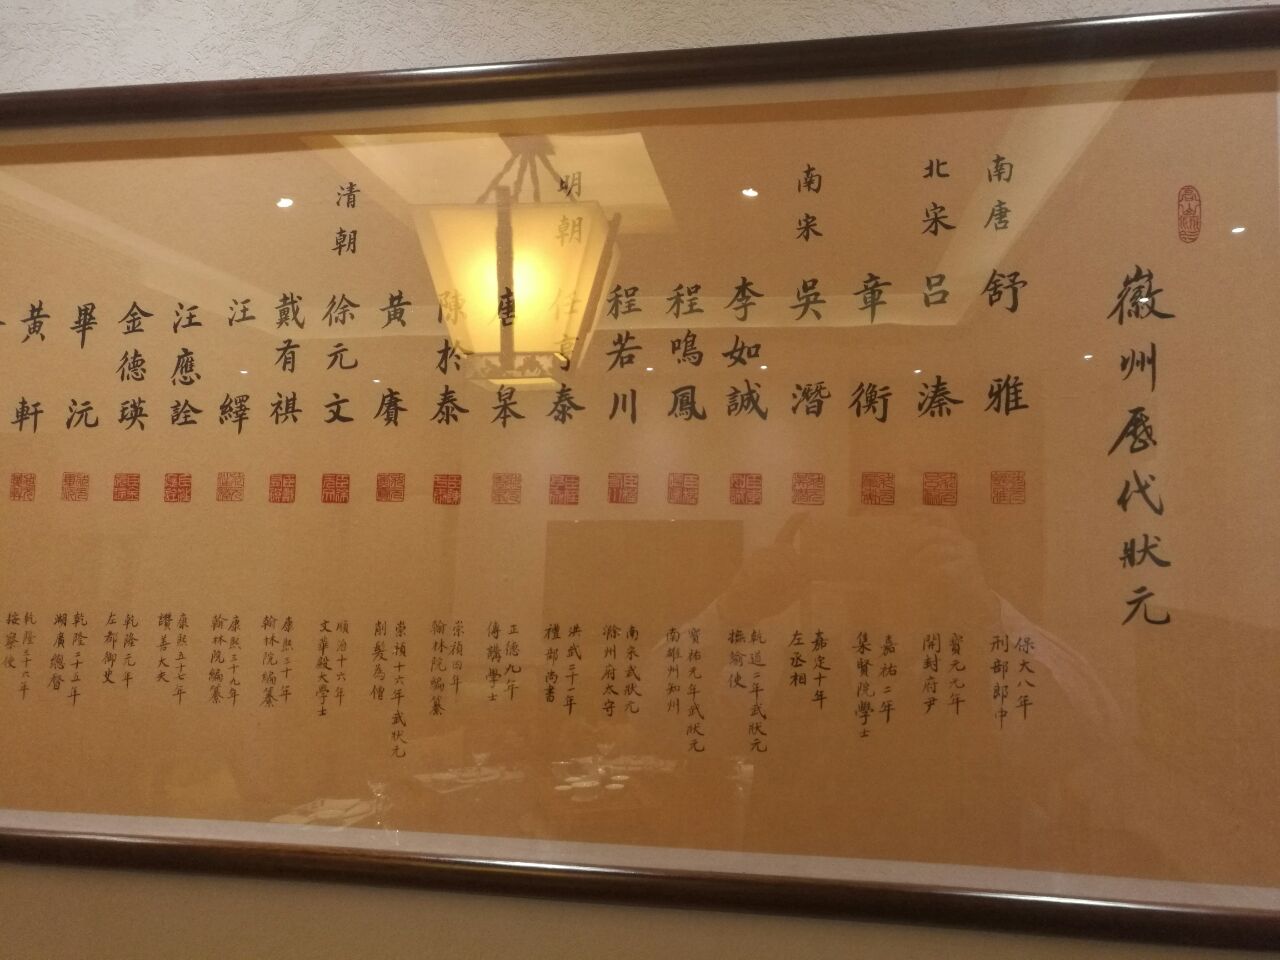 徽州歷代狀元
南唐
舒雅
保大八年
刑部郎中
北宋
呂溱
寶元元年
開封府尹
章衡
嘉祐二年
集賢院學士
南宋
吳潛
嘉定十年
左丞相
李如誠
乾道二年武狀元
撫諭使
程鳴鳳
寶祐元年武狀元
南雄州知州
程若川
南宋武狀元
滁州府太守
明朝
任亨泰
洪武二十一年
禮部尚書
唐皋
正德九年
侍講學士
陳於泰
崇禎四年
翰林院編纂
黃賡
崇禎十六年武狀元
削髮為僧
清朝
徐元文
順治十六年
文華殿大學士
戴有祺
康熙三十年
翰林院編纂
汪繹
康熙三十九年
翰林院編纂
汪應詮
康熙五十七年
讚善大夫
金德瑛
乾隆元年
左都御史
畢沅
乾隆二十五年
湖廣總督
黃軒
乾隆三十六年
按察使